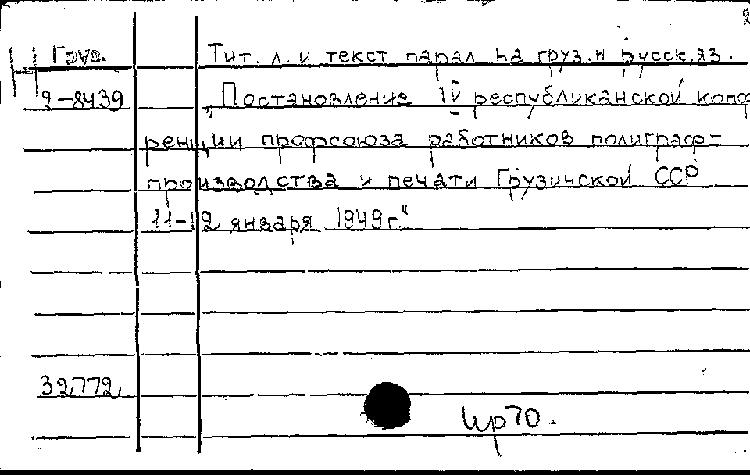 2
Груз. Тит. л. и текст парал на груз. и русск. яз.
2-8439 „Постановление IV республиканской конф
ренции профсоюза работников полиграф-
производства и печати Грузинской ССР
11-12 января 1949 г."
32772